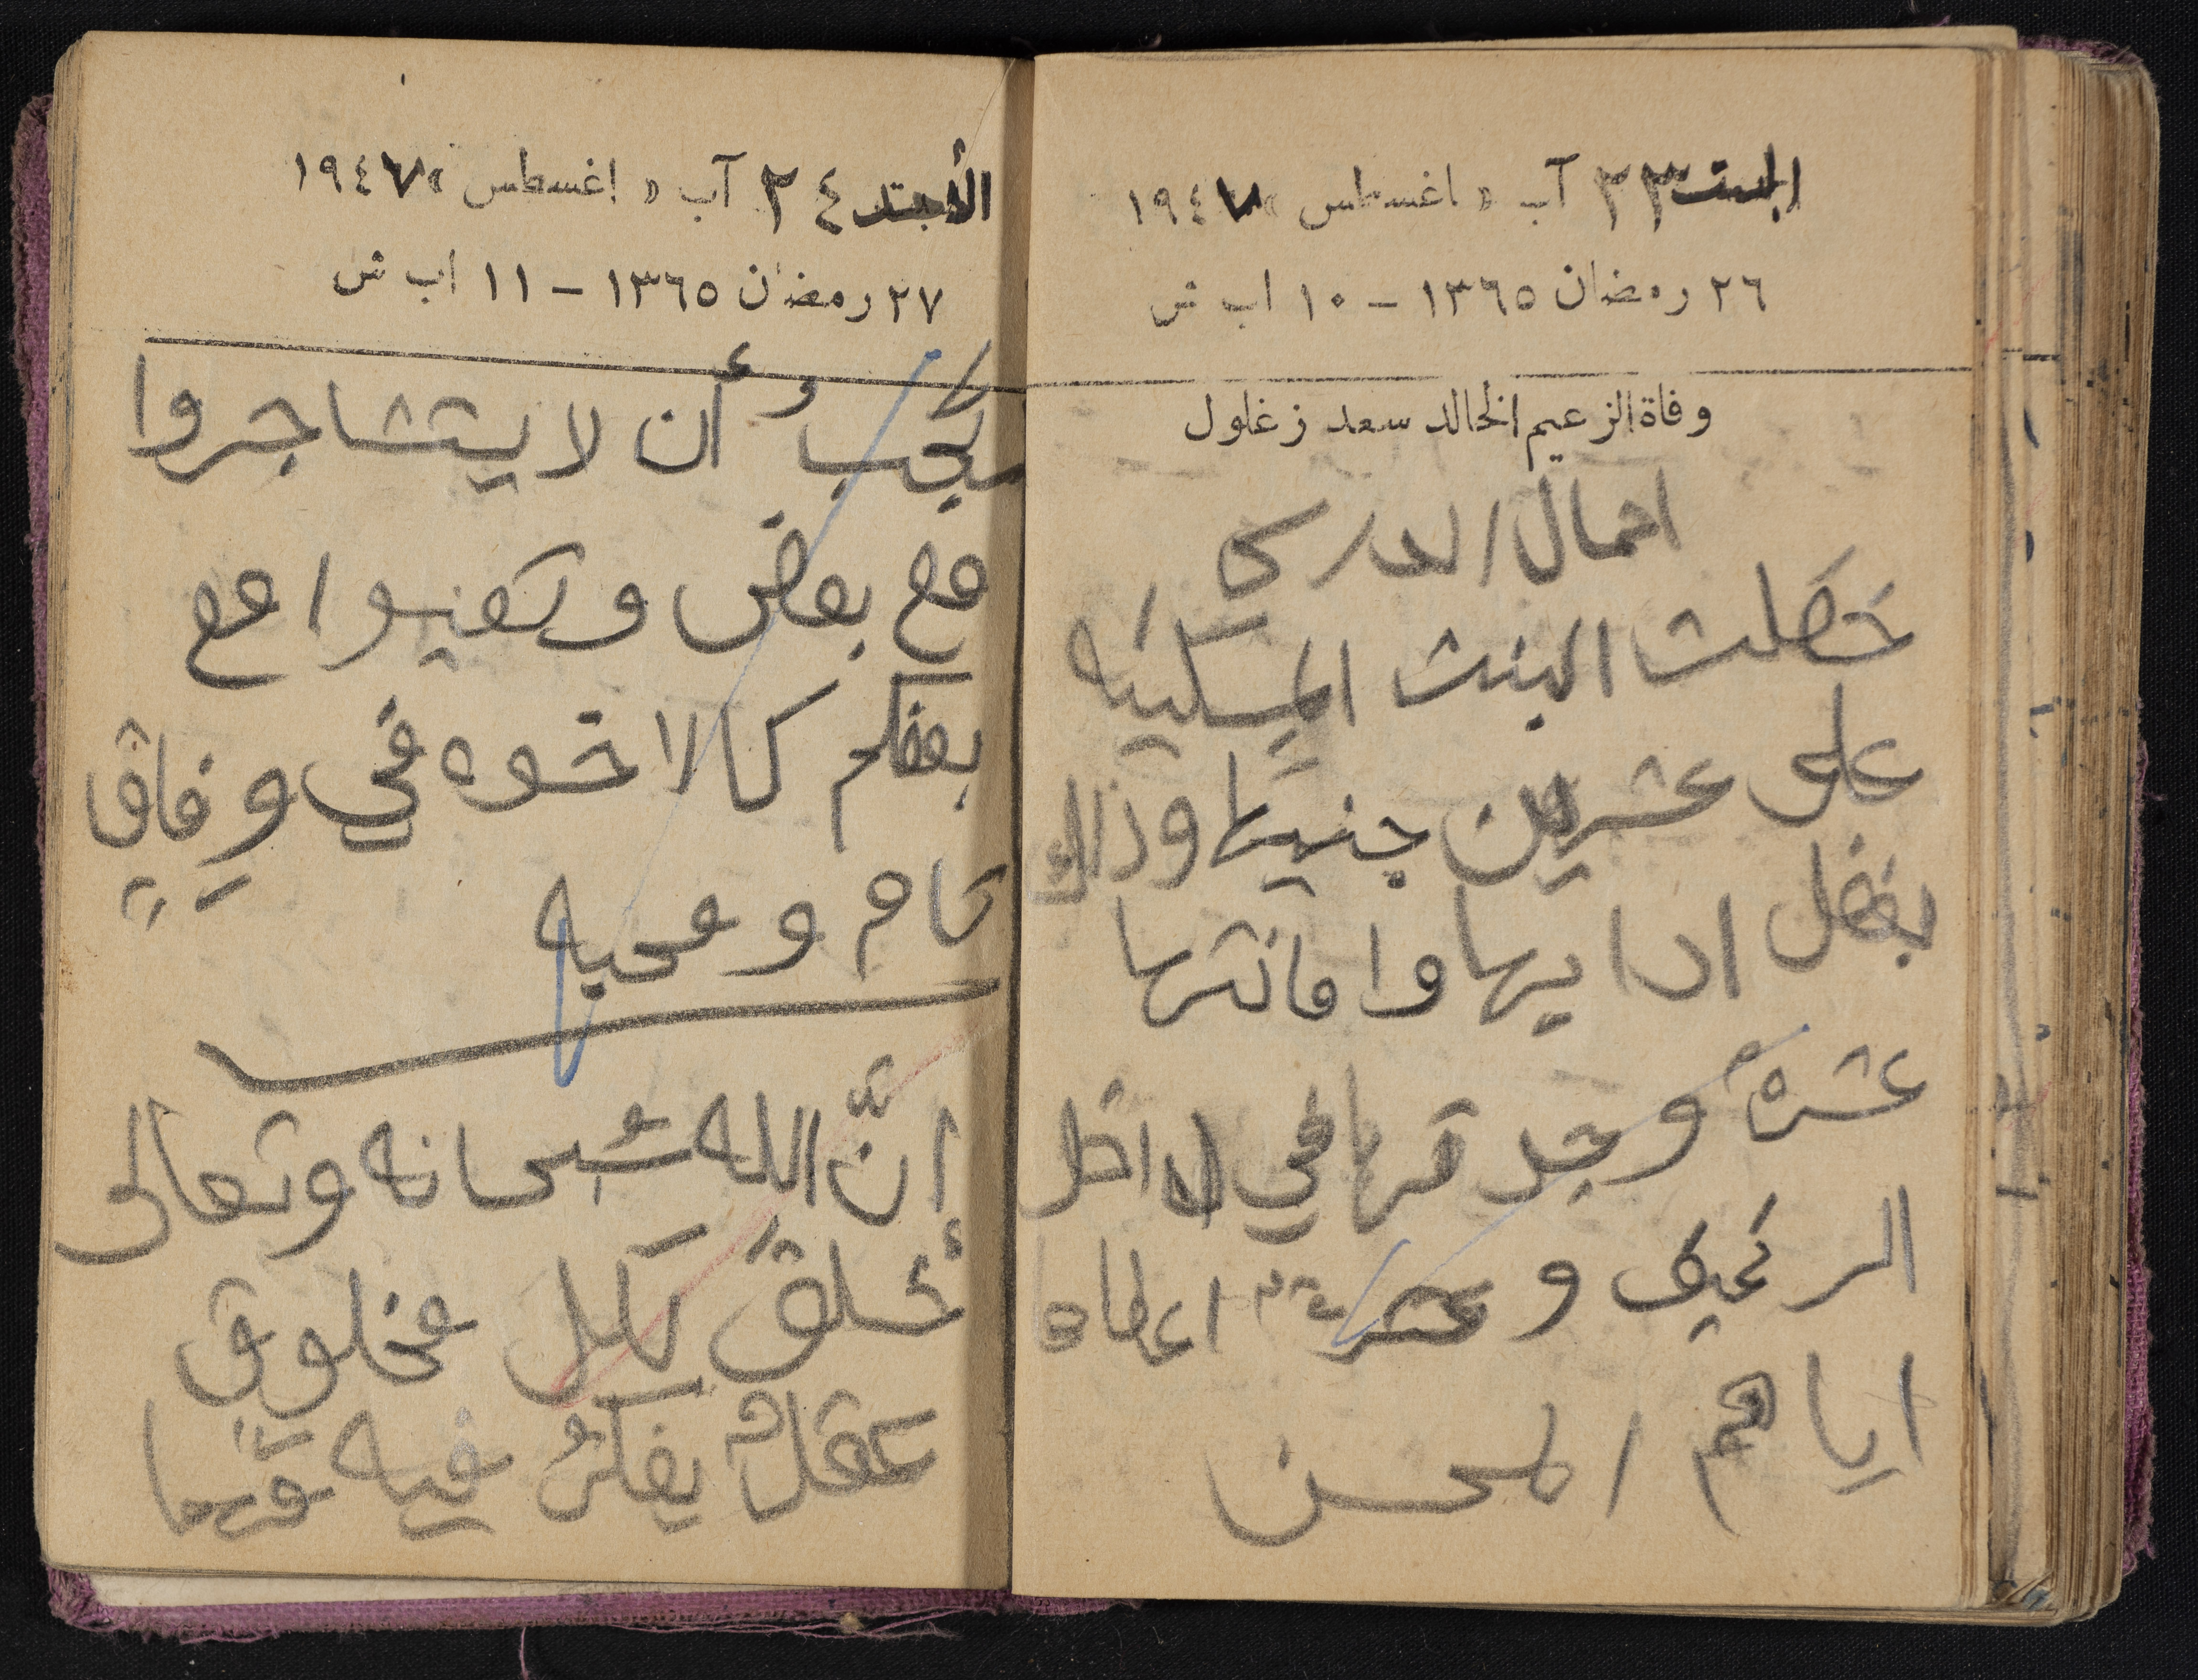 السبت ٢٣ آب « اغسطس » ١٩٤٧
٢٦ رمضان ١٣٦٥ – ١٠ اب ش
وفاة الزعيم الخالد سعد زغلول
اعمال
حَصَلت البنت المِسكينَه
على عشرين جنيهًا وذلك
بفضل ادابها وامانتها
عشرةٌ وجدتها في داخل
الرغيف و عشرةٌ اعطاها
اياهم المحسن
الأحد ٢٤ آب « اغسطس » ١٩٤٧
٢٧ رمضان ١٣٦٥ – ١١ اب ش
يجبُ أن لا يتشاجروا
مع بعض وتعيشوا مع
بعضكم كالاخوه في وِفاقٍ
تام ومحبه
إنّ الله سُبحانه وتعالى
خلقَ لِكل مخلوقٍ
عقلٌ يفكرُ فيه